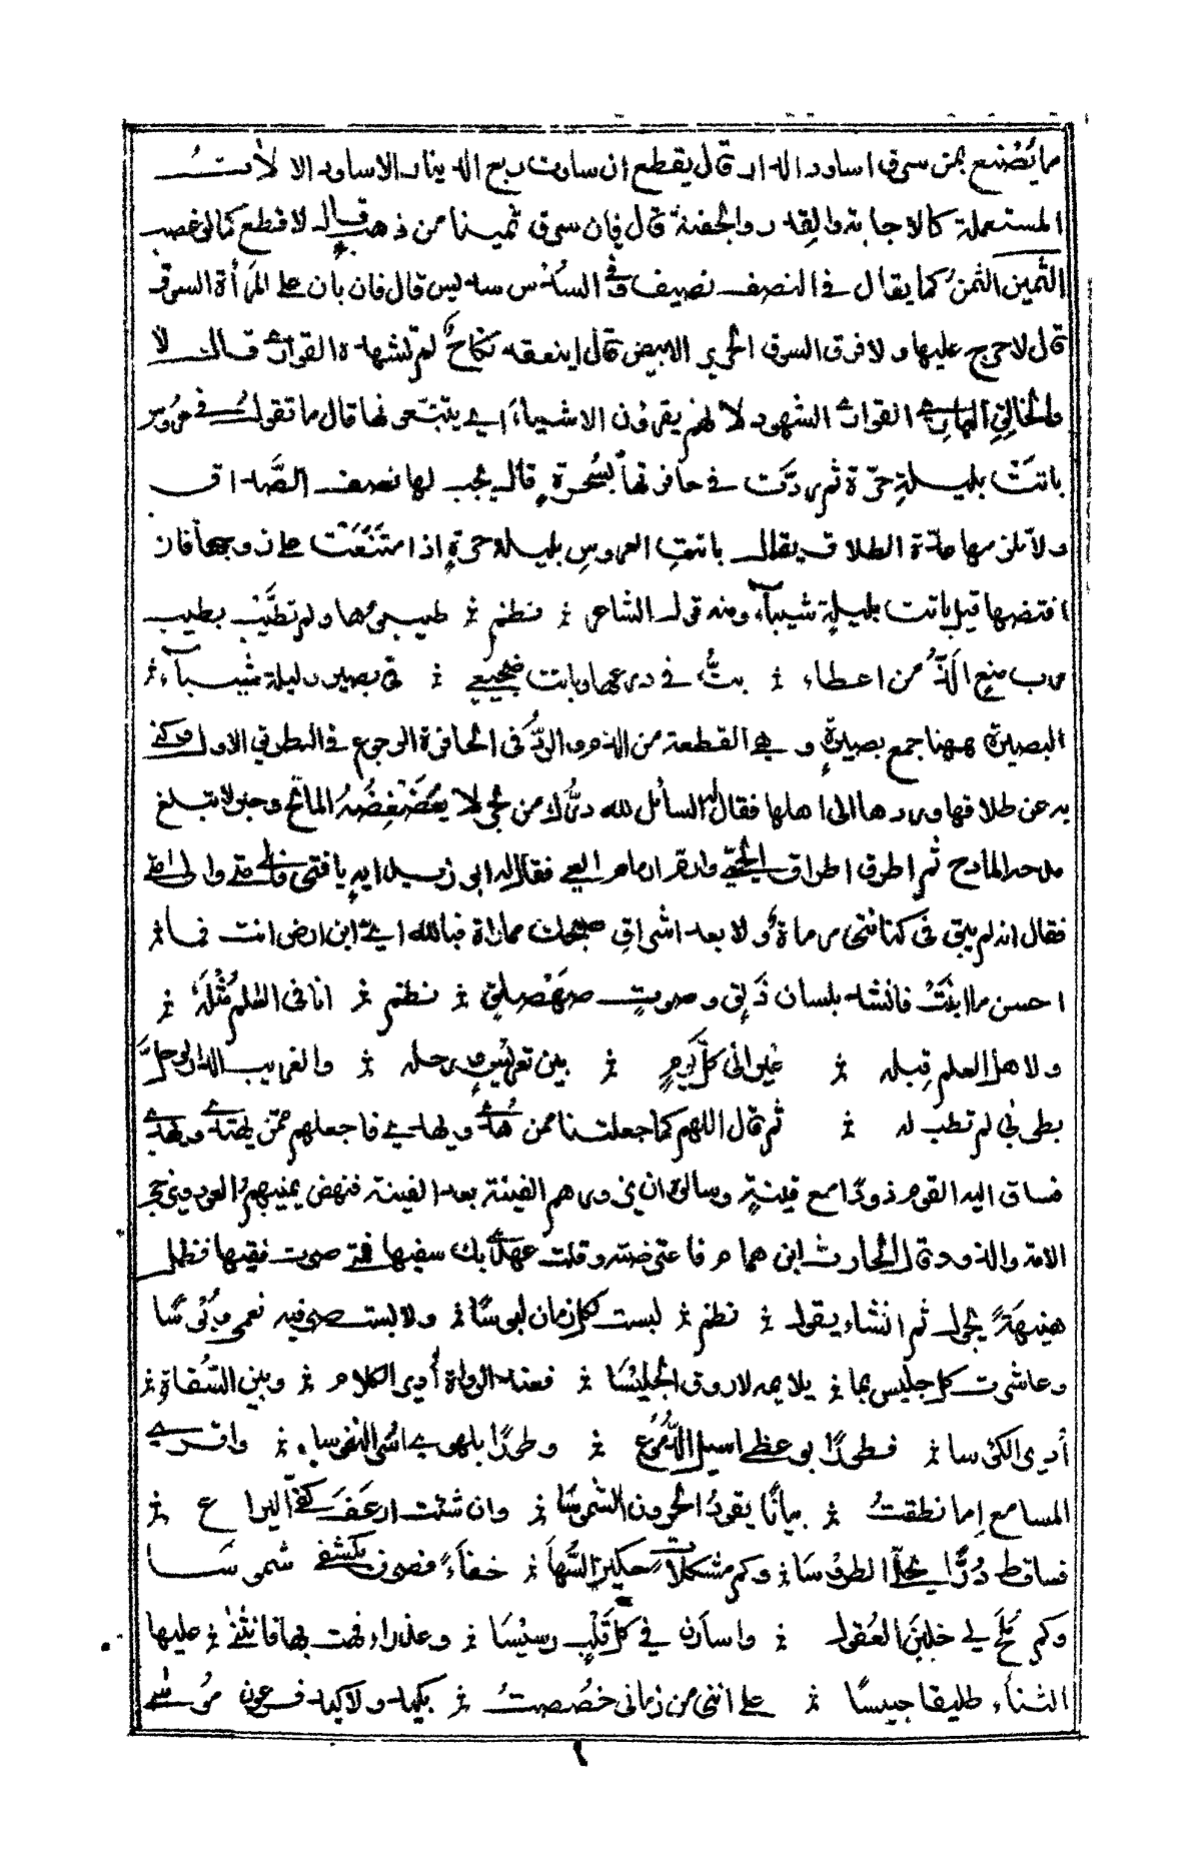 مما يُصْنع بمن سرق اساود الدار قال يقطع ان ساوت ربع الدينار الاساود الالاتُ
المستعملة كالاجانة والقدر والجفنة قال فان سرق ثمينا من ذهب قال لا قطع كما لو غصب
الثمين الثمن كما يقال في النصف نصيف وفي السدس سديس قال فان بان على المرأة السرق
قال لا حرج عليها ولا فرق السرق الحرير الابيض قال اينعقد نكاحٌ لم تشهده القوارى قال لا
والخالقِ البارى القوارى الشهود لانهم يقرون الاشياءَ اى يتتبعونها قال ما تقولُ في عروس
باتَتْ بليلةِ حرّة ثم ردّت في حافرتها بسُحرةٍ قال يجب لها نصف الصَّداق
ولا تلزمها عدّة الطلاق يقال باتتِ العروس بليلة حرةٍ اذا امتنَعَتْ على زوجها فان
افتضها قيل باتت بليلةِ شيباءَ ومنه قول الشاعر نظم طيبوها ولم تطيَّبْ بطيب
رب منعٍ الَذُّ من اعطاء بتُّ في درعها وباتت ضجيعي في بصير وليلة شيباء
البصيرة ههنا جمع بصيرةٍ وهي القطعة من الدم والردُّ في الحافرة الرجوع في الطريق الاول وكنى
به عن طلاقها وردها الى اهلها فقال له السائل لله درُّك من بحر لا يغضْغِضُهُ الماتح وحبر لا تبلغ
مدحه المادح ثم اطرق اطراق الحيي وارم ارمام العيي فقال له ابو زيد ايه يا فتى فالى متى والى متى
فقال انه لم يبق في كنانتى مرماةٌ ولا بعد اشراق صبحك مماراة فبالله اىّ ابن ارض انت فما
احسن ما ابنتَ فانشد بلسان ذَلِق وصوت صَهْصلق نظم انا في العلم مُثْلَه
ولاهل العلم قِبله غير انى كلَّ يَومٍ بين تعريس ورحله والغريب الدار لو حلَّ
بطوبى لم تطب له ثم قال اللهم كما جعلتنا ممن هُدى ويهدى فاجعلهم ممّن يهتدى ويُهدى
فساق اليه القوم ذودًا مع قينةٍ وسالوه ان يزورهم الفينة بعد الفينة فنهض يمنيهم العود ويزجر
الامة والذود قال الحارث ابن همام فاعترضته وقلت عهدى بك سفيها فمتى صرت فقيها فظل
هنيهَةً يجول ثم انشاء يقول نظم لبست لكل زمان لبوسًا ولابست صرفيه نعمى وبُوسًا
وعاشرت كل جليس بما يلايمه لاروق الجليسَا فعند الرواة أدير الكلام وبين السُّقاة
أدير الكئوسا فطورًا بوعظى اسيل الدُّمُوعَ وطورًا بلهوى اسُر النفوسا واقرى
المسامع اما نطقتُ بيانًا يقودُ الحرون الشموسَا وان شئت ارعَفَ كفّى اليراع
فساقط دُرًّا يحلّى الطروسَا وكم مشكلاتٍ حكين السُّهَا خفاءً فصرن بكشفى شموسَا
وكم مُلَحٍ لى خلبنَ العُقول واسأرن في كل قلبٍ رسيسَا وعذراء فهت بها فانثنى عليها
الثناء طليقا حبيسًا على اننى من زمانى خُصصتُ بكيد ولا كيد فرعون مُوسى